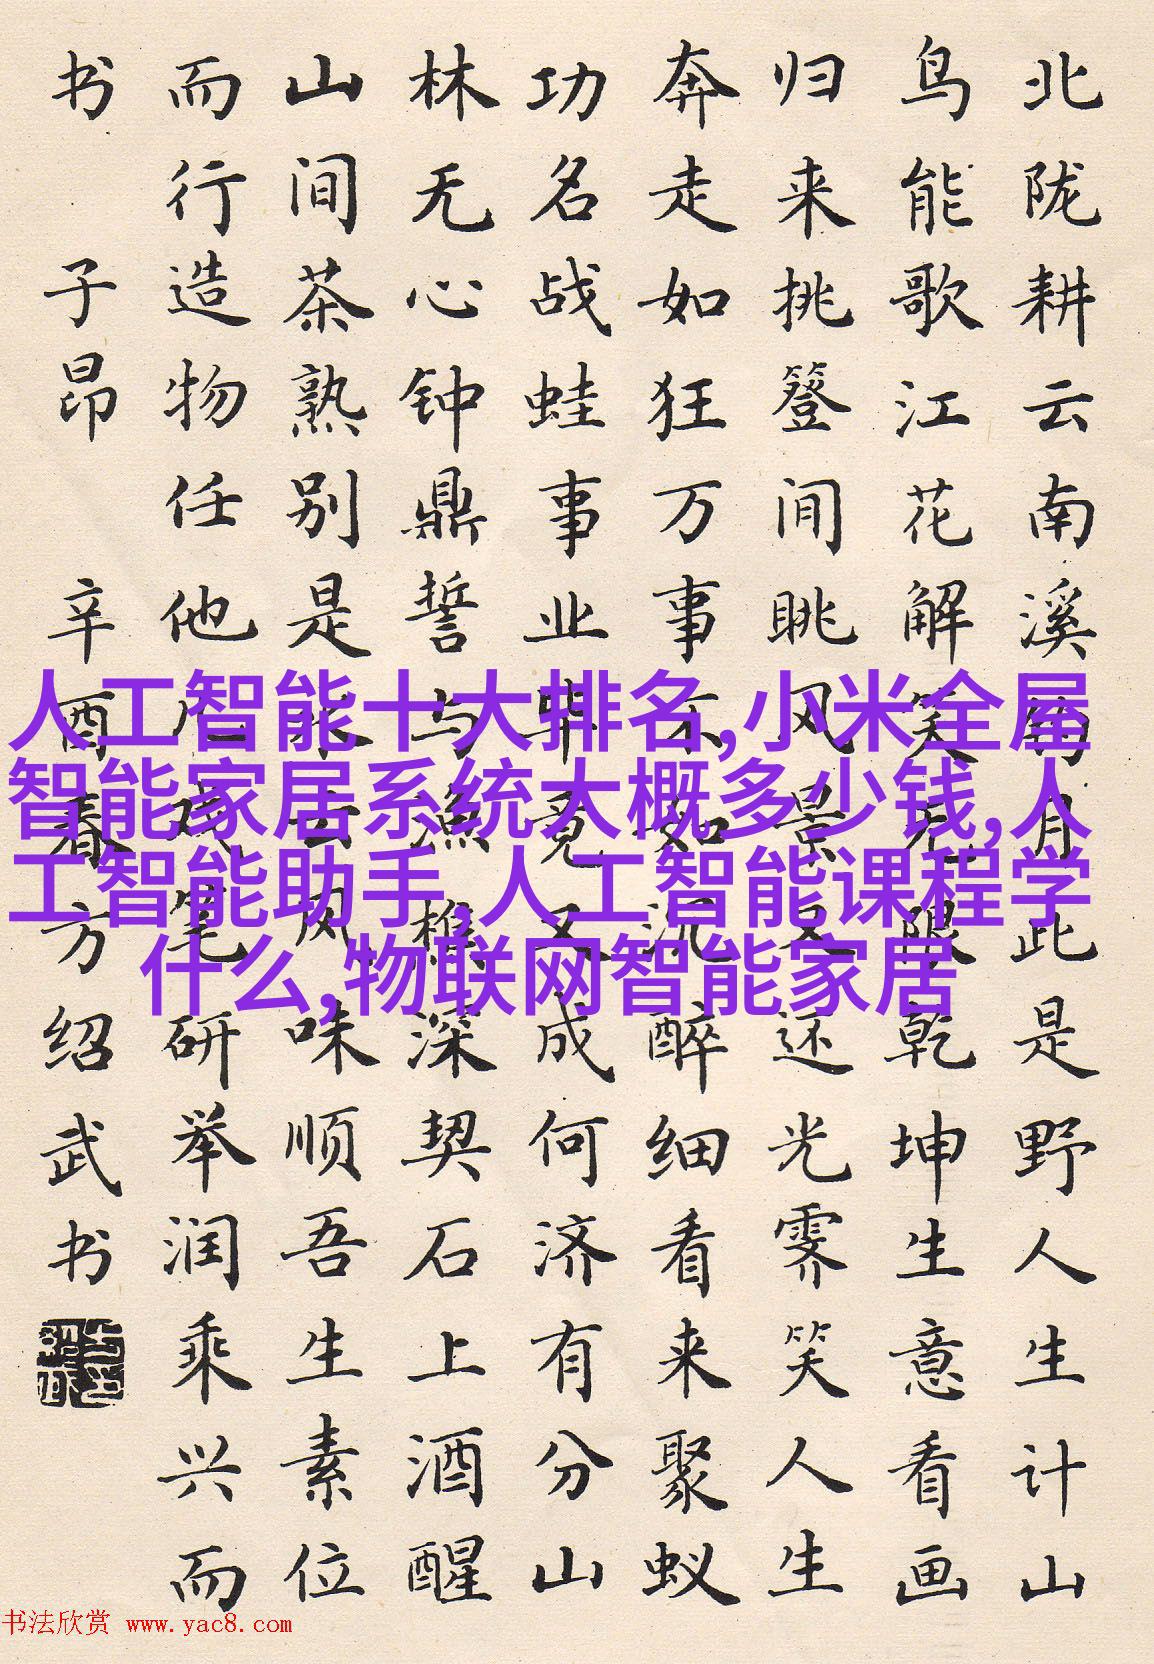 北陇耕云南溪钓月此是野人生计山
鸟能歌江花解笑无限乾坤生意看画
归来挑簦间眺风景又还光霁笑人生
奔走如狂万事不如沉醉细看来聚蚁
功名战蛙事业毕竟又成何济有分山
林无心钟鼎誓与渔樵深契石上酒醒
山间茶熟别是水云风味顺吾生素位
而行造物任他儿戏笔研举润乘兴而
书 子昂 辛酉春方绍武书
人工智能十大排名,小米全屋
智能家居系统大概多少钱,人
工智能助手,人工智能课程学
什么,物联网智能家居
书法欣赏 www.yac8.com